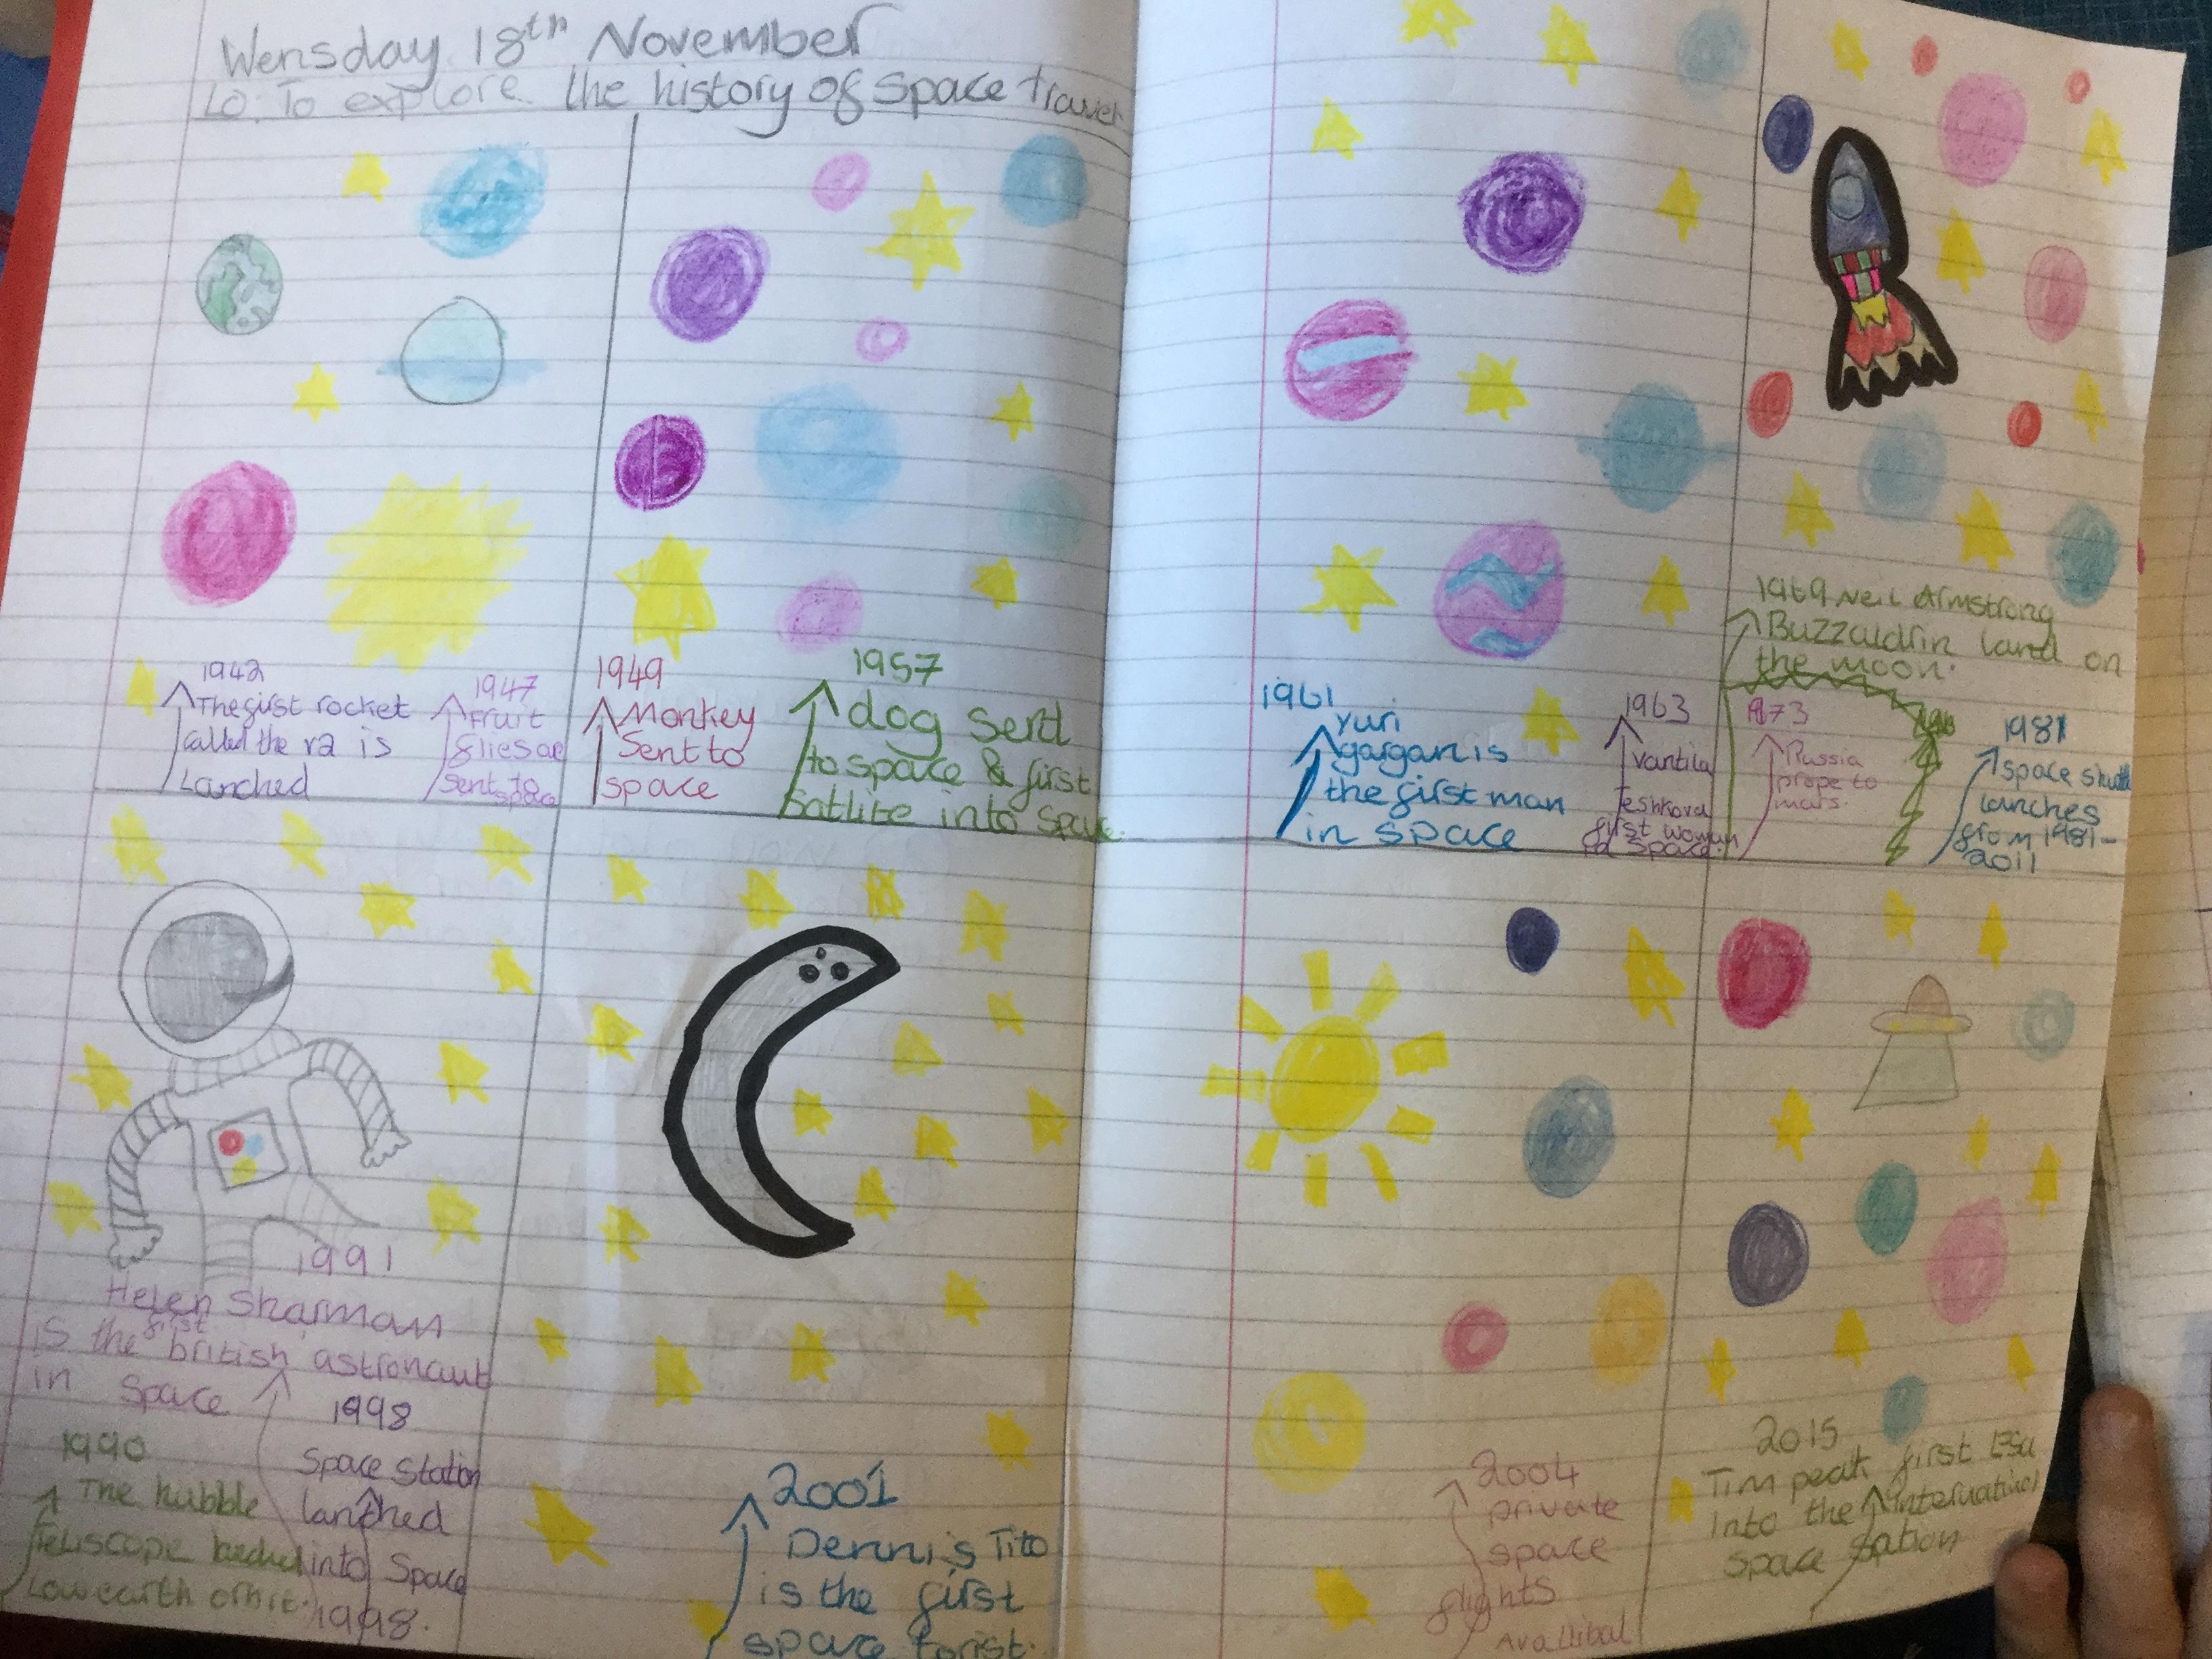 Wensday 18th November
LO: To explore the history of space travel
1942
The first rocket
called the v2 is
Lanched
1947
fruit
flies are
sent to
space
1949
Monkey
Sent to
space
1957
dog sent
to space & first
Satlite into space.
1961
Yuri
gargan is
the first man
in space
1963
vantila
Teshkova
first woman
in space.
1969 Neil Armstrong
Buzz aldrin land on
the moon.
1973
Russia
prope to
mars.
1981
space shuttle
lanches
from 1981-
2011
1991
Helen Sharman
is the first british astronaut
in space
1990
The hubble
Teliscope
Low earth orbit.
1998
Space Station
lanched
into Space
1998.
2001
Dennis Tito
is the first
space torist.
2004
private
space
flights
Avallibal
2015
Tim peak first Esa
Into the International
space station